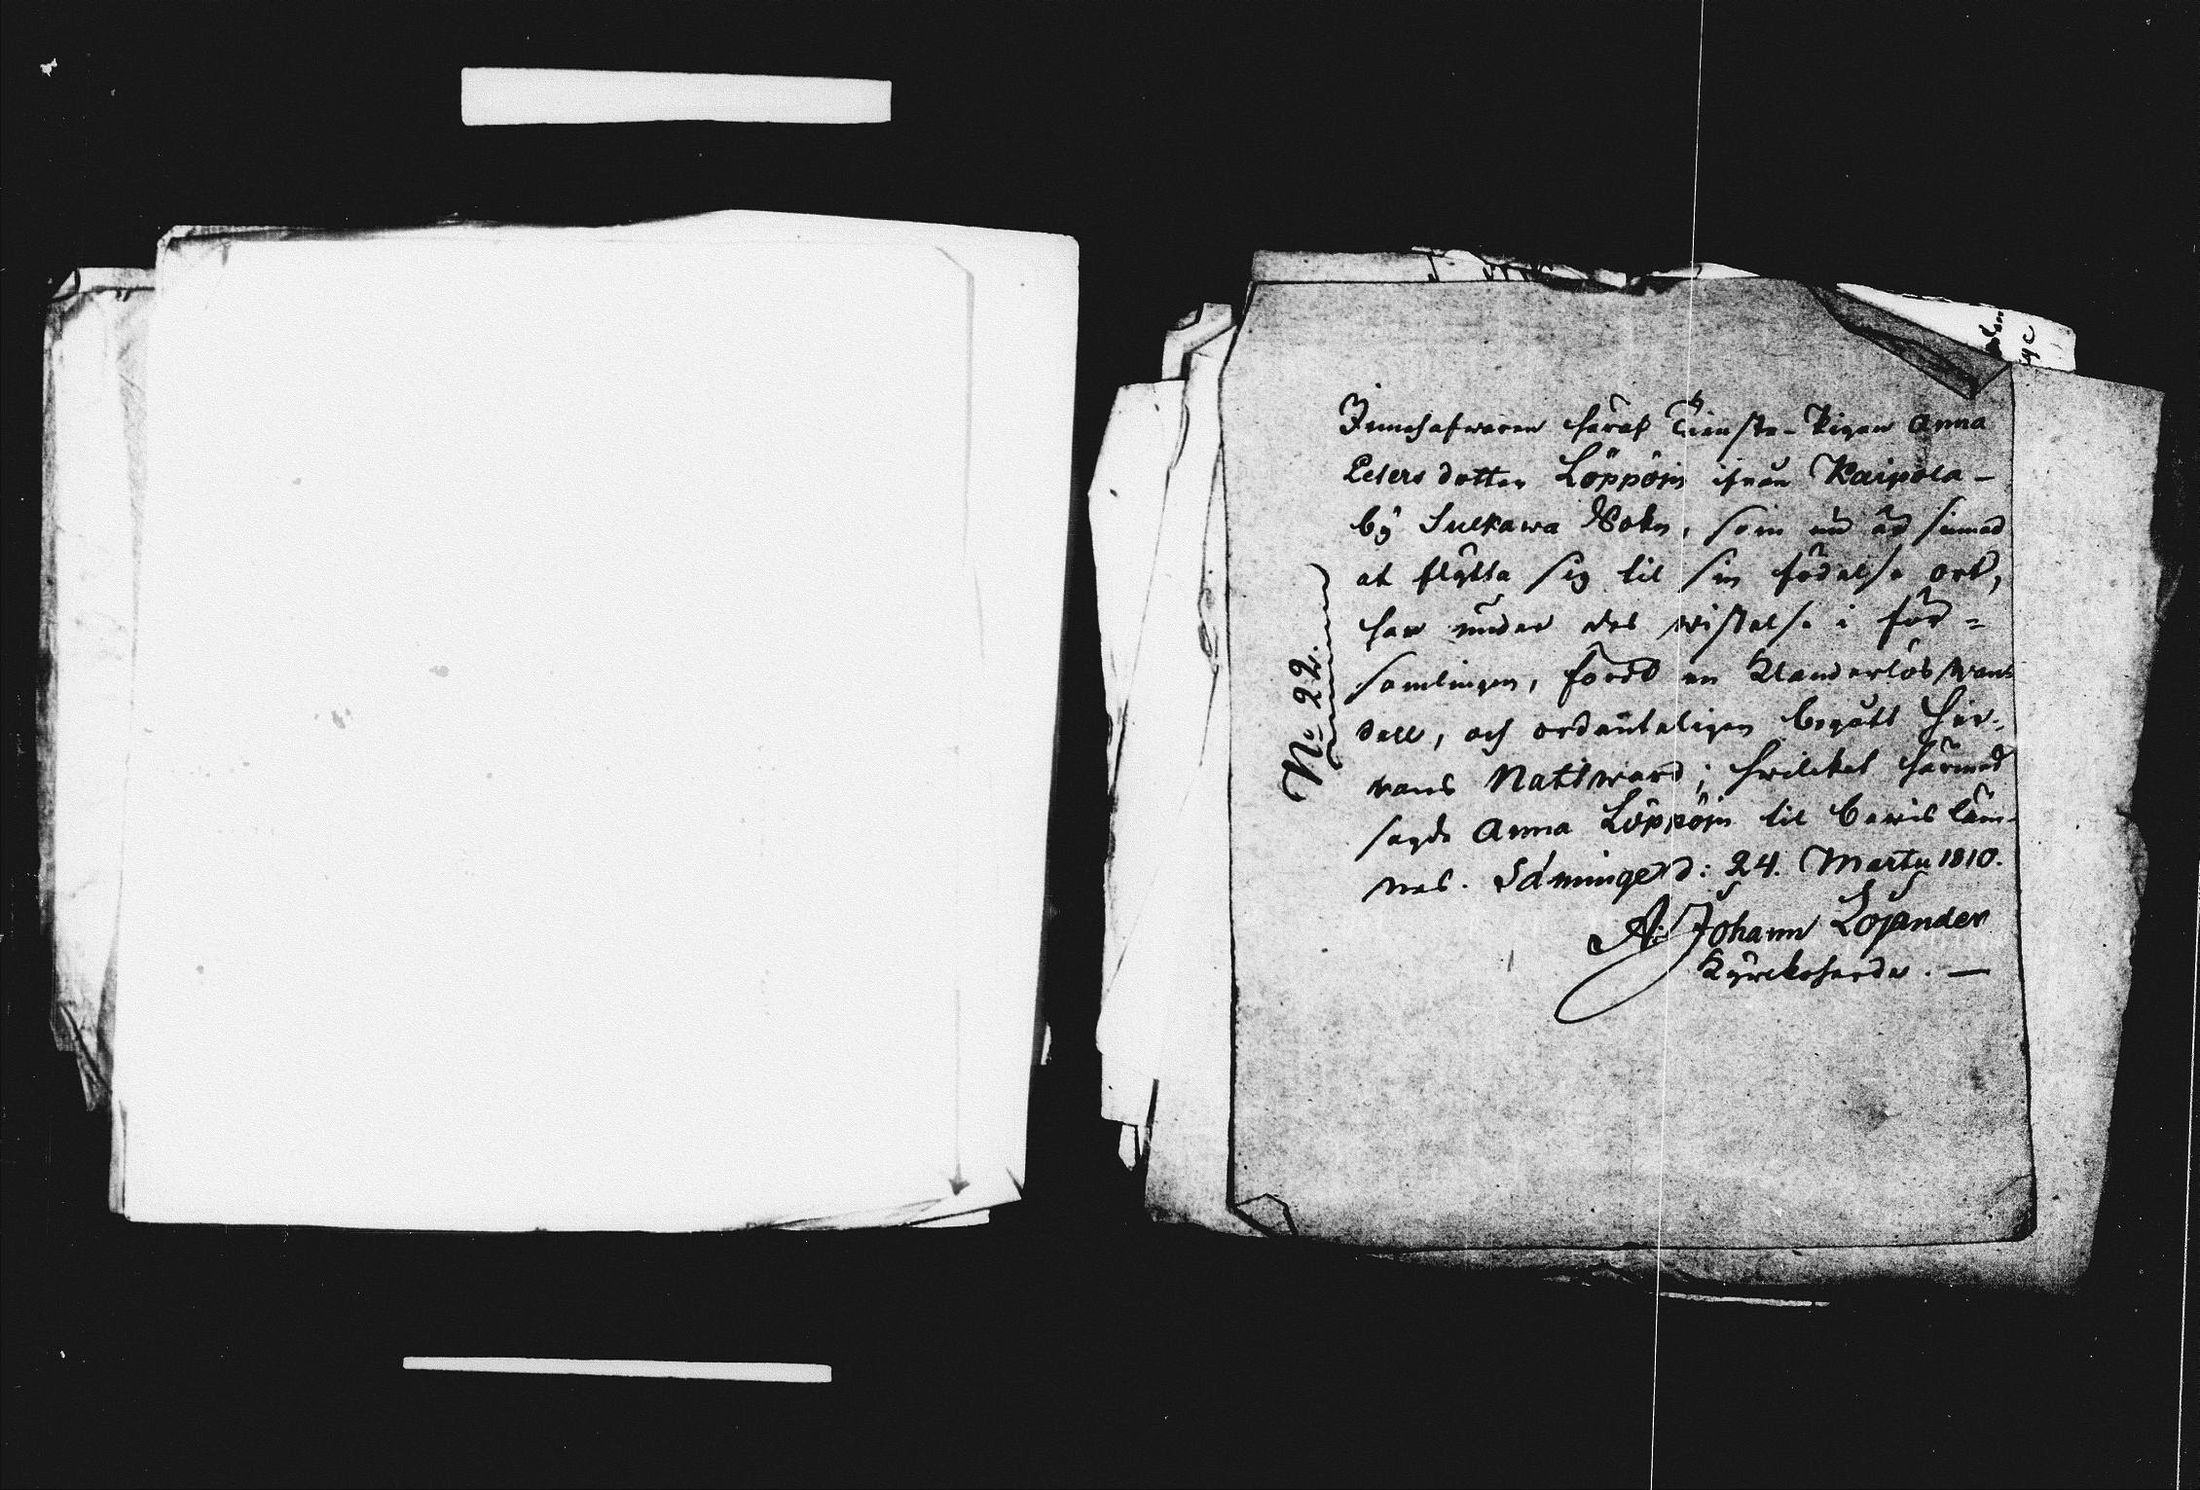 Innehafwaren häraf Tienste-Pigan Anna
Peters dotter Löppöin ifrån Kaipola-
bÿ Sulkawa Sokn, som nu är sinnad
at flÿtta sig til sin födelse ort,
har under des wistelse i för=
samlingen, fördt en Klanderlös wan-
dell, och ordenteligen begått Her-
rans Nattward; hwilcket härmed
sagde Anna Löppöin til bewis läm-
nas. Säminge d: 24. Martii 1810.
Johann
Kÿrckoherde. —
No 22.